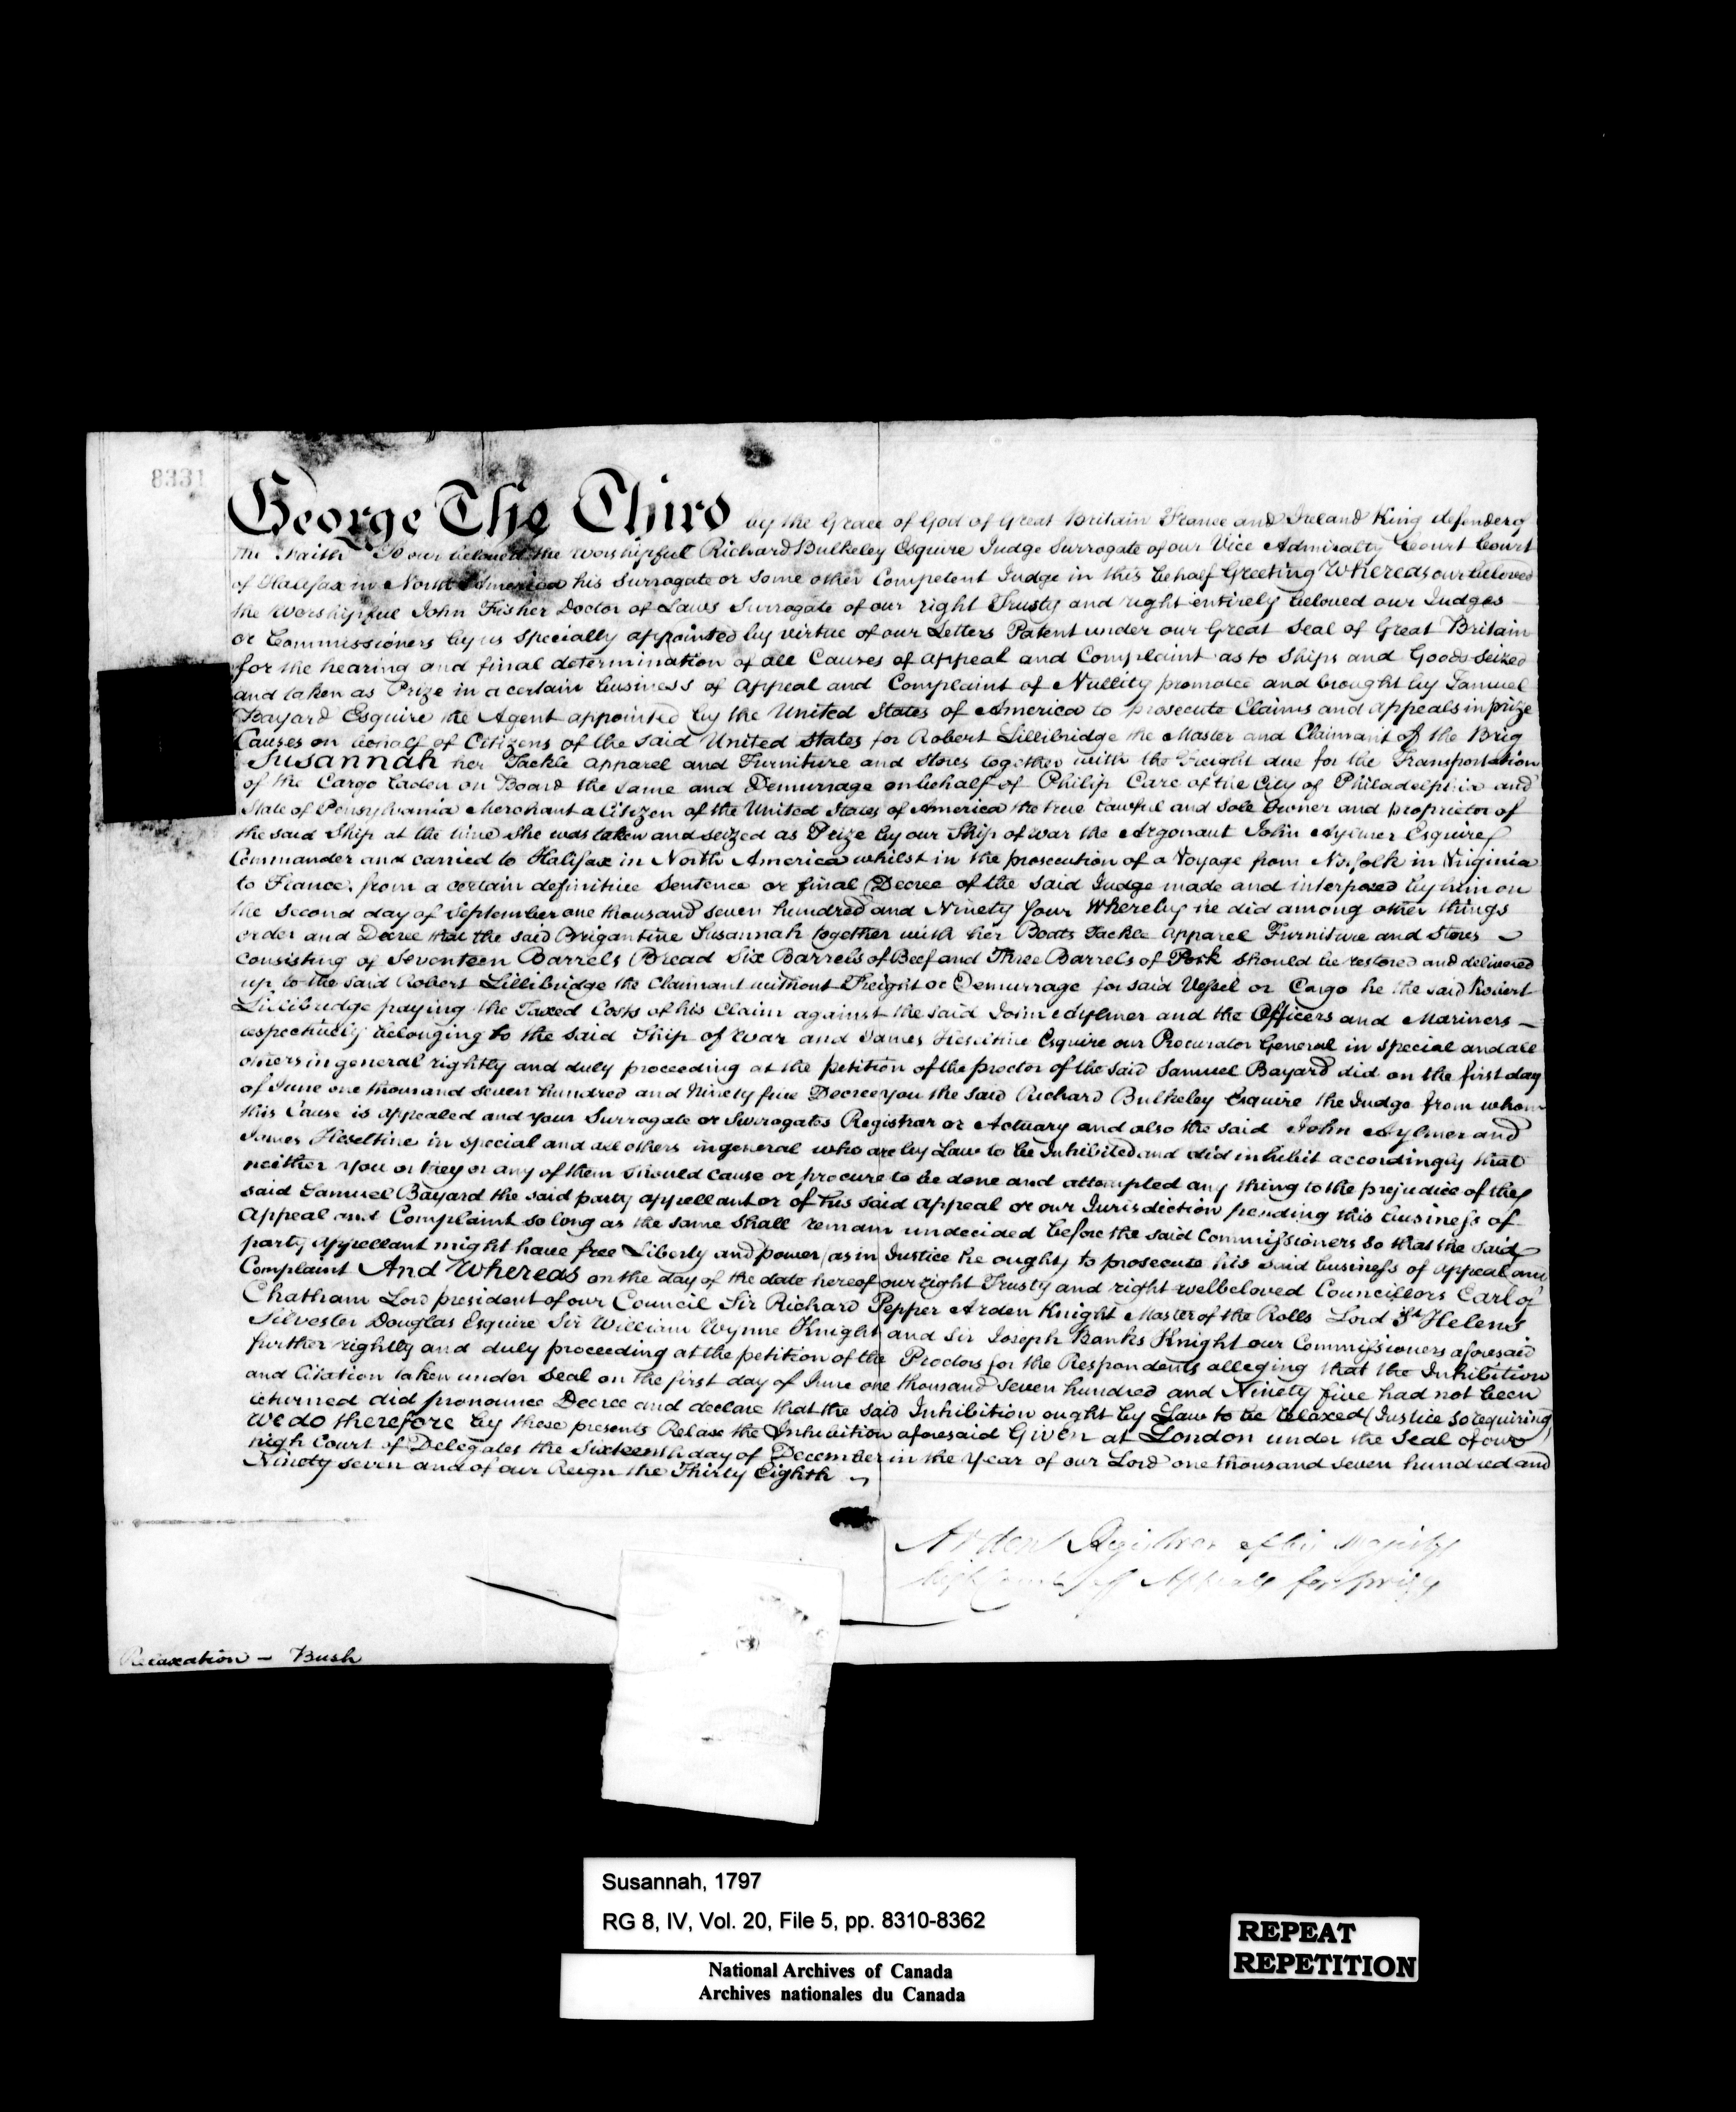 8331
George The Third by the Grace of God of Great Britain France and Ireland King defender of
the Faith To our beloved the Worshipful Richard Bulkeley Esquire Judge Surrogate of our Vice Admiralty Court Court
of Halifax in North America his Surrogate or some other Competent Judge in this behalf Greeting Whereas our beloved
the Worshipful John Fisher Doctor of Laws Surrogate of our right Trusty and right entirely beloved our Judges
or Commissioners by us specially appointed by virtue of our Letters Patent under our Great Seal of Great Britain
for the hearing and final determination of all Causes of appeal and Complaint as to Ships and Goods Seized
and taken as Prize in a certain business of Appeal and Complaint of Nullity promoted and brought by Samuel
Bayard Esquire the Agent appointed by the United States of America to prosecute Claims and appeals in prize
Causes on behalf of Citizens of the said United States for Robert Lillibridge the Master and Claimant of the Brig
Susannah her Tackle apparel and Furniture and Stores together with the Freight due for the Transportation
of the Cargo laden on Board the same and Demurrage on behalf of Philip Care of the City of Philadelphia and
State of Pensylvania Merchant a Citizen of the United States of America the true lawful and sole Owner and proprietor of
the said Ship at the time she was taken and seized as Prize by our Ship of war the Argonaut John Aylmer Esquire
Commander and carried to Halifax in North America whilst in the prosecution of a Voyage from Norfolk in Virginia
to France. from a certain definitive Sentence or final Decree of the said Judge made and interposed by him on
the Second day of September one thousand seven hundred and Ninety four Whereby he did among other things
order and Decree that the said Brigantine Susannah together with her Boats Tackle apparel Furniture and Stores
consisting of Seventeen Barrels Bread Six Barrels of Beef and Three Barrels of Pork should be restored and delivered
up to the said Robert Lillibridge the Claimant without Freight or Demurrage for said Vessel or Cargo he the said Robert
Lillibridge paying the Taxed Costs of his Claim against the said John Aylmer and the Officers and Mariners
respectively belonging to the said Ship of War and James Heseltine Esquire our Procurator General in special and all
others in general rightly and duly proceeding at the petition of the proctor of the said Samuel Bayard did on the first day
of June one thousand seven hundred and Ninety five Decree you the said Richard Bulkeley Esquire the Judge from whom
this Cause is appealed and your Surrogate or Surrogates Registrar or Actuary and also the said John Aylmer and
James Heseltine in special and all others in general who are by Law to be Inhibited and did inhibit accordingly that
neither you or they or any of them should Cause or procure to be done and attempted any thing to the prejudice of the
said Samuel Bayard the said party appellant or of his said appeal or our Jurisdiction pending this business of
Appeal and Complaint so long as the same shall remain undecided before the said Commissioners so that the said
party appellant might have free Liberty and power (as in Justice he ought) to prosecute his said business of appeal and
Complaint And Whereas on the day of the date hereof our right Trusty and right welbeloved Councillors Earl of
Chatham Lord president of our Council Sir Richard Pepper Arden Knight Master of the Rolls Lord St Helens
Silvester Douglas Esquire Sir William Wynne Knight and Sir Joseph Banks Knight our Commissioners aforesaid
further rightly and duly proceeding at the petition of the Proctors for the Respondents alleging that the Inhibition
and Citation taken under Seal on the first day of June one thousand seven hundred and Ninety five had not been
returned did pronounce Decree and declare that the said Inhibition ought by Law to be relaxed (Justice so requiring)
We do therefore by these presents Relax the Inhibition aforesaid Given at London under the Seal of our
high Court of Delegates the Sixteenth day of December in the year of our Lord one thousand seven hundred and
Ninety seven and of our Reign the Thirty Eighth
Arden Registrar of his Majestys
high Court of Appeals for prizes
Relaxation - Bush
Susannah, 1797
RG 8, IV, Vol. 20, File 5, pp. 8310-8362
National Archives of Canada
Archives nationales du Canada
REPEAT
REPETITION